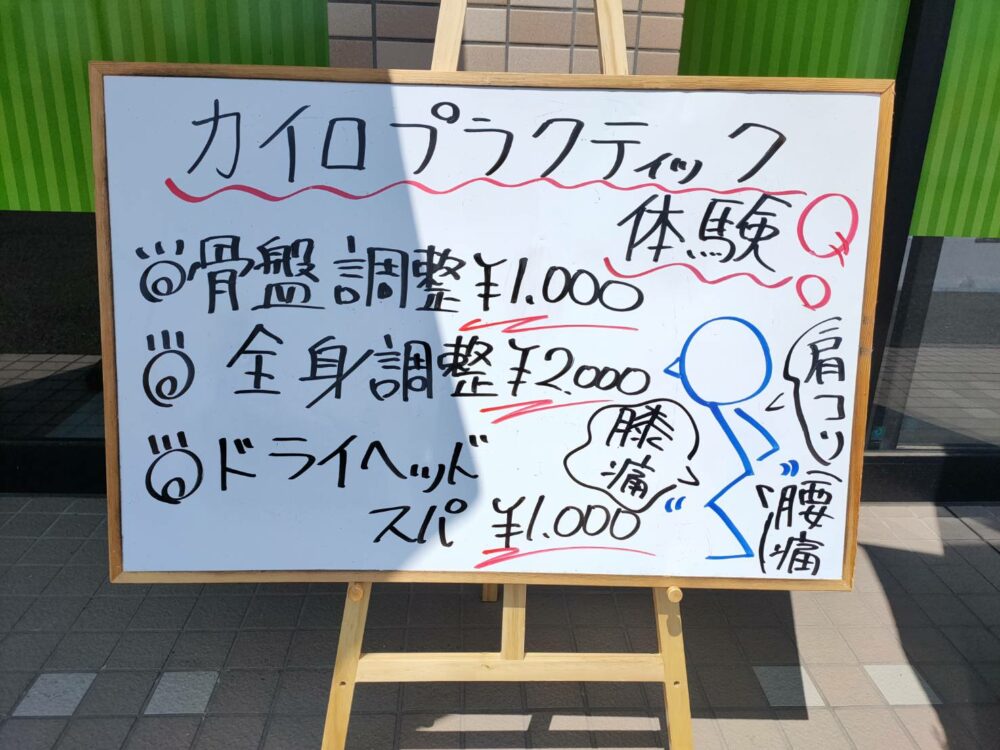 カイロプラクティック
体験
骨盤調整 ¥1.000
全身調整 ¥2.000
ドライヘッド
スパ ¥1.000
膝
痛
肩コリ
腰
痛